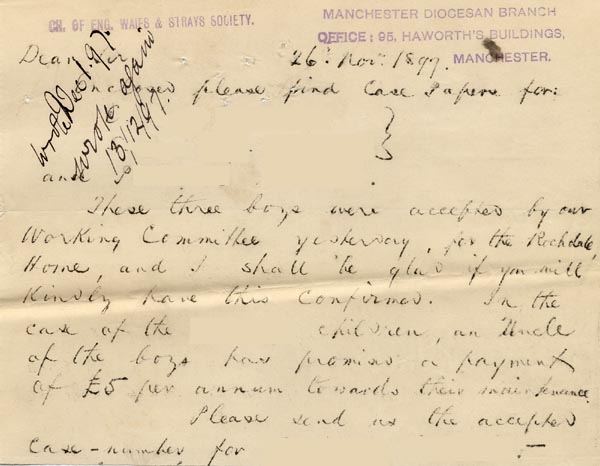 CH. OF ENG. WAIFS & STRAYS SOCIETY.
MANCHESTER DIOCESAN BRANCH
OFFICE: 95, HAWORTH'S BUILDINGS,
MANCHESTER.
26th Nov: 1897.
Dear Sir
wrote Dec 1. 97.
wrote again
13/12/97.
please find Case Papers for:
and
These three boys were accepted by our
Working Committee yesterday, for the Rochdale
Home, and I shall be glad if you will
kindly have this confirmed. In the
case of the children, an Uncle
of the boys has promised a payment
of £5 per annum towards their maintenance
Please send us the accepted
case-number for